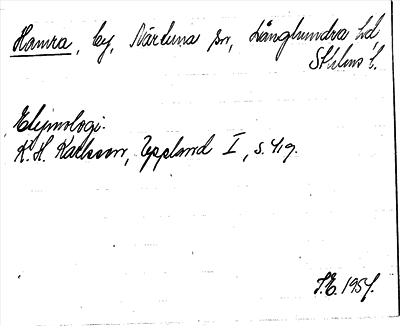 Hamra, by, Närtuna sn, Långhundra hd,
Sthlms l.
Etymologi.
K. H. Karlsson, Uppland I, s. 419.
1954.